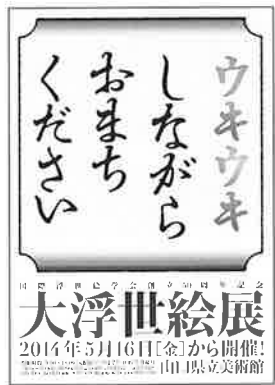 ウキウキ
しながら
おまち
ください
国際浮世絵学会創立50周年記念
大浮世絵展
2014年5月16日[金]から開催!
山口県立美術館